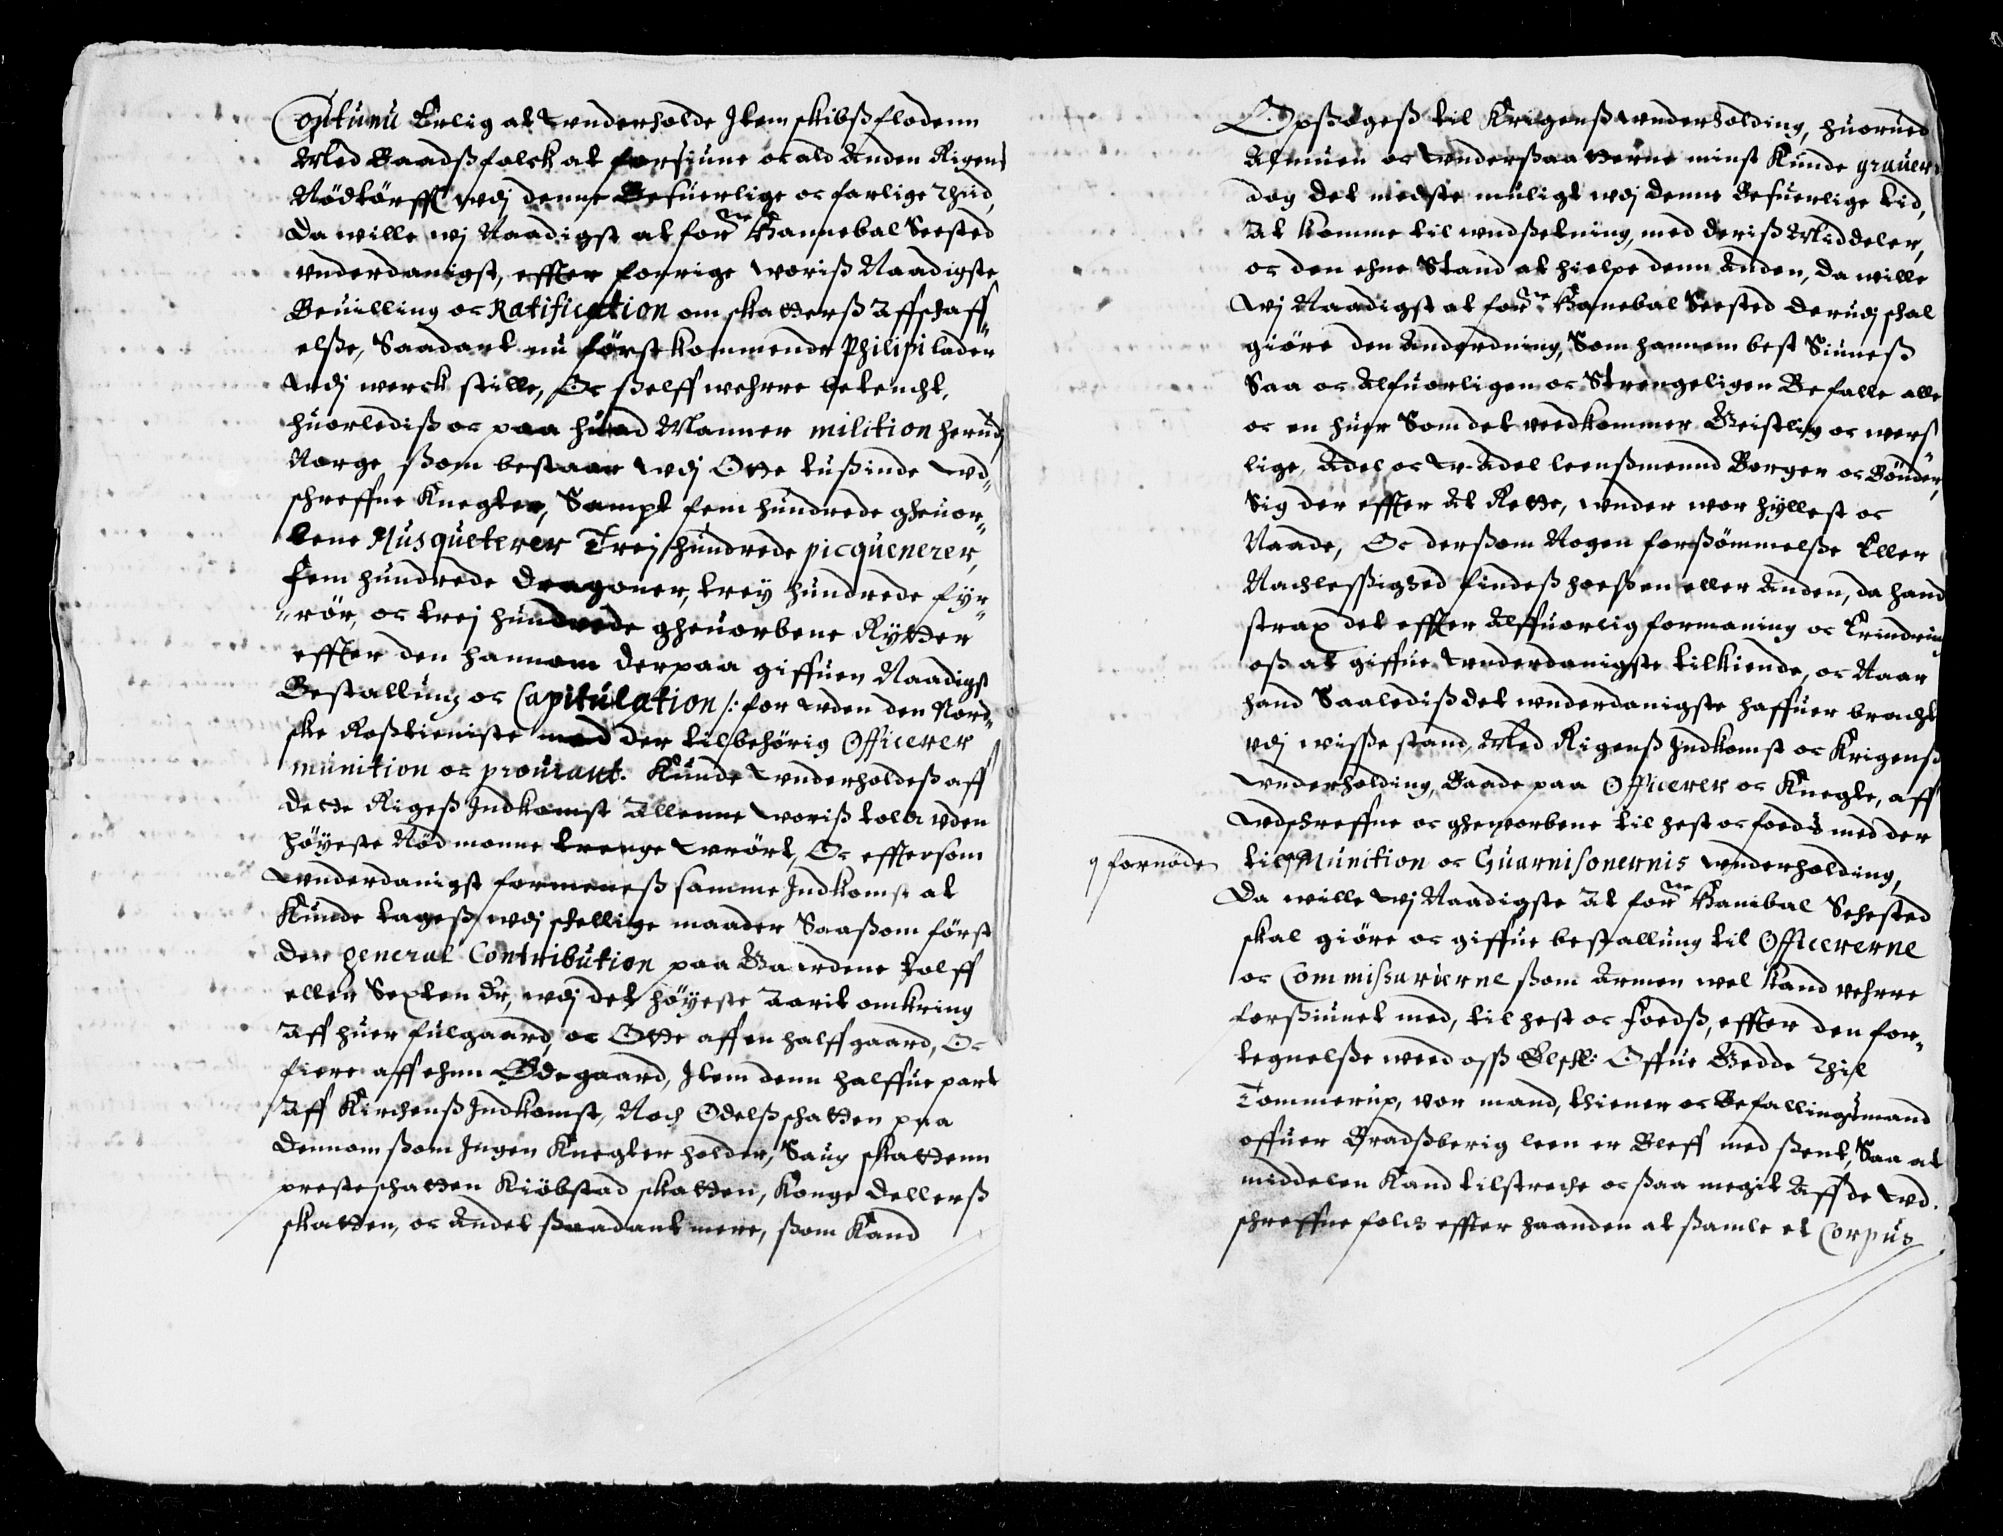 Continu Erlig at vnderholde Item skibsflodenn
Med Baadsfolck at forsiune oc ald Anden Rigens
Nödtörfft wdj denne Besuerlige oc farlige Thiid,
Da wille wj Naadigst at forne Hannebal Seested
vnderdanigst, effter forrige Woris Naadigste
Beuilling oc Ratification om skatterß Affschaff¬
elße, Saadant nu först kommende Philipi laden
Wdj werck stille, Oc ßelff wehrre betencht,
huorlediß oc paa huad Manner milition herudj
Norge ßom bestaar wdj Otte tußinde Wd¬
schreffne Knegter, Sampt fem hundrede gheuor¬
bene Musqueterer Trej hundrede picquenerer,
Fem hundrede Dragoner, trey hundrede fyr¬
rör, oc trej hundrede gheuorbene Rytter
effter den hannom derpaa giffuen Naadigst
Bestallung oc Capitulation /: for vden den Nord¬
ske Roßtieniste med der tilbehörig Officerer
munition oc prouiant. Kunde Wnderholdeß aff
dette Rigeß Indkomst Allenne Woriß told vden
höyeste Nöd monne trenge Wrört, Oc effterßom
Wnderdanigst formeneß samme Indkomst at
Kunde tageß wdj schellige maader Saaßom först
den general Contribution paa Gaardene tolff
eller Sexten dr, wdj det höyeste Aarit omkring
Aff huer fulgaard, oc Otte aff en halff gaard, Oc
fiere aff ehnn Ödegaard, Item denn halffue part
Aff Kirchenß Indkomst, Noch Odelßschatten paa
Dennom ßom Ingen Knegter holder, Saug skattenn
presteschatten Kiöbstad skatten, Konge dellerß
skatten, oc Andet ßaadant mere, ßom Kand
Opßögeß til Krigenß Wnderholding, huorued
Almuen oc Wnderßaatterne minst Kunde grauer
dog det medste müligt wdj denne Besuerlige tid,
At komme til wndßetning, med deriß Middeler,
oc den ehne Stand at hielpe denn Anden, da wille
Wj Naadigst at forne Hanebal Seested derudj schal
giöre den Andordning, Som hannem best Siuneß
Saa oc Alfuorligen oc Strengeligen Befalle alle
oc en huer Som det vedkommer Geistlig oc wers¬
lige, Adel oc W-Adel leenßmennd Borger oc Bönder,
Sig der effter At Rette, wnder wor hyllest oc
Naade, Oc derßom Nogen forßömmelße Eller
Nachlessighed findeß hoeß en eller Anden, da hand
strax det effter Alffuorlig formaning oc Erindring
oß at giffue Wnderdanigste tilkiende, oc Naar
hand Saalediß det wnderdanigste haffuer bracht
vdj wisße stand, Med Rigenß Indkomst oc Krigenß
Wnderholding, Baade paa Officerer oc Knegte, aff
Wdschreffne oc gheworbene til hest oc foeds med der
q fornöde
til q Munition oc Guarnisonernis Wnderholding,
Da wille Wj Naadigste At forne Hanibal Sehested
skal giöre oc giffue bestallung til Officererne
oc Commissarierne ßom Armen wel kand vehrre
forßiunet med, til hest oc foedß, effter den for¬
tegnelße weed oß Elschl: Offue Gedde Thil
Tommerup, vor mand, thiener oc Befallingsmand
offuer Bradßberig leen er Bleff med ßent, Saa at
middelen Kand tilstreche oc ßaa megit Aff de Wd¬
schreffne folck effter haanden at ßamle et Corpus